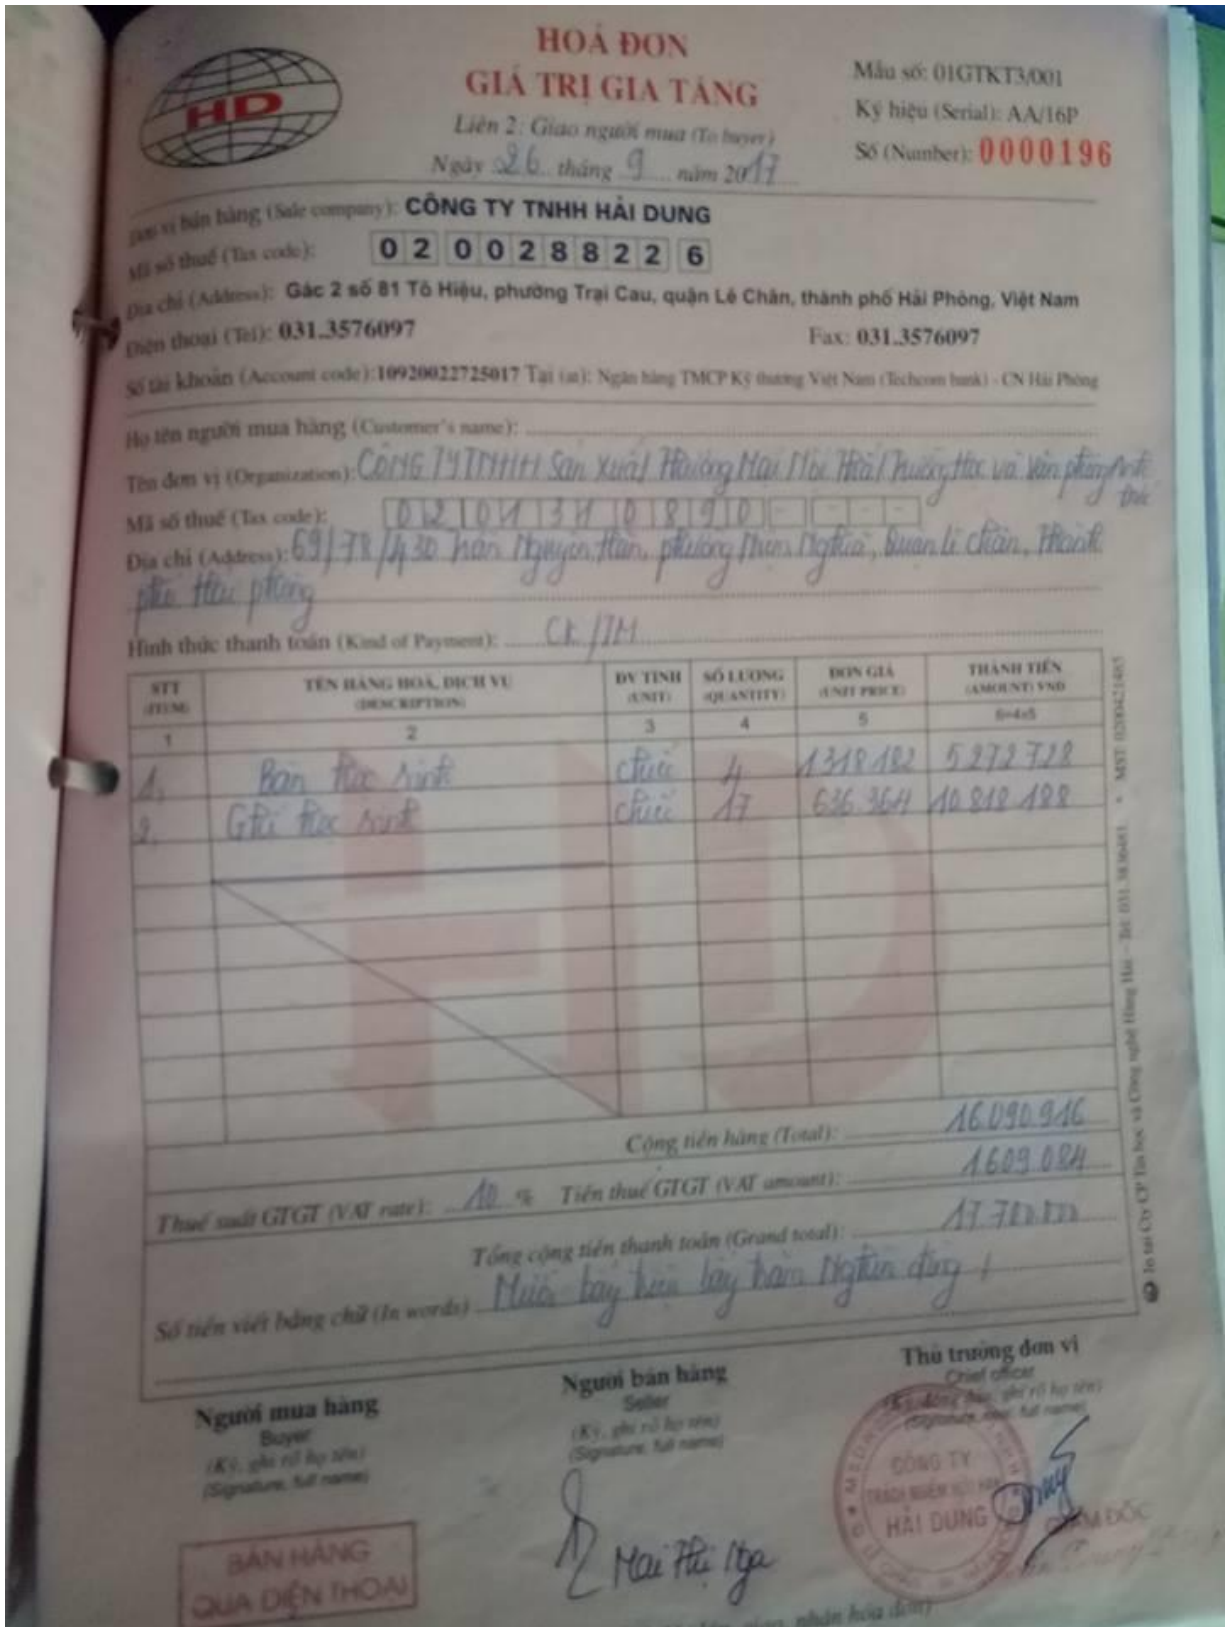 HOÁ ĐƠN
GIÁ TRỊ GIA TĂNG
Liên 2: Giao người mua (To buyer)
Ngày 26 tháng 9 năm 2017
HD
Mẫu số: 01GTKT3/001
Ký hiệu (Serial): AA/16P
Số (Number): 0000196
Đơn vị bán hàng (Sale company): CÔNG TY TNHH HẢI DUNG
Mã số thuế (Tax code): 0200288226
Địa chỉ (Address): Gác 2 số 81 Tô Hiệu, phường Trại Cau, quận Lê Chân, thành phố Hải Phòng, Việt Nam
Điện thoại (Tel): 031.3576097 Fax: 031.3576097
Số tài khoản (Account code): 10920022725017 Tại (at): Ngân hàng TMCP Kỹ thương Việt Nam (Techcom bank) - CN Hải Phòng
Họ tên người mua hàng (Customer's name):
Tên đơn vị (Organization): CÔNG TY TNHH Sản Xuất Thương Mại Nội Thất Trường Học và Văn phòng Anh
Mã số thuế (Tax code):
Địa chỉ (Address): 69/78/430 Trần Nguyên Hãn, phường Niệm Nghĩa, Quận lê chân, Thành
phố Hải phòng
Hình thức thanh toán (Kind of Payment): CK/TM
STT (ITEM) TÊN HÀNG HOÁ, DỊCH VỤ (DESCRIPTION) ĐV TÍNH (UNIT) SỐ LƯỢNG (QUANTITY) ĐƠN GIÁ (UNIT PRICE) THÀNH TIỀN (AMOUNT) VND
1 2 3 4 5 6=4x5
1. Bàn học sinh chiếc 4 1318182 5272728
2. Ghế học sinh chiếc 17 636364 10 818 188
Cộng tiền hàng (Total): 16.090.916
Thuế suất GTGT (VAT rate): 10 % Tiền thuế GTGT (VAT amount): 1.609.084
Tổng cộng tiền thanh toán (Grand total): 17.700.000
Số tiền viết bằng chữ (In words) Mười bảy triệu bảy trăm Nghìn đồng /
Người mua hàng
Buyer
(Ký, ghi rõ họ tên)
(Signature, full name)
Người bán hàng
Seller
(Ký, ghi rõ họ tên)
(Signature, full name)
Mai Thị Nga
Thủ trưởng đơn vị
Chief officer
(Ký, đóng dấu, ghi rõ họ tên)
CÔNG TY
TRÁCH NHIỆM HỮU HẠN
HẢI DUNG
GIÁM ĐỐC
BÁN HÀNG
QUA ĐIỆN THOẠI
nhận hóa đơn)
In tại Cty CP Tin học và Công nghệ Hàng Hải - Tel: 031.3836481 * MST: 0200421485